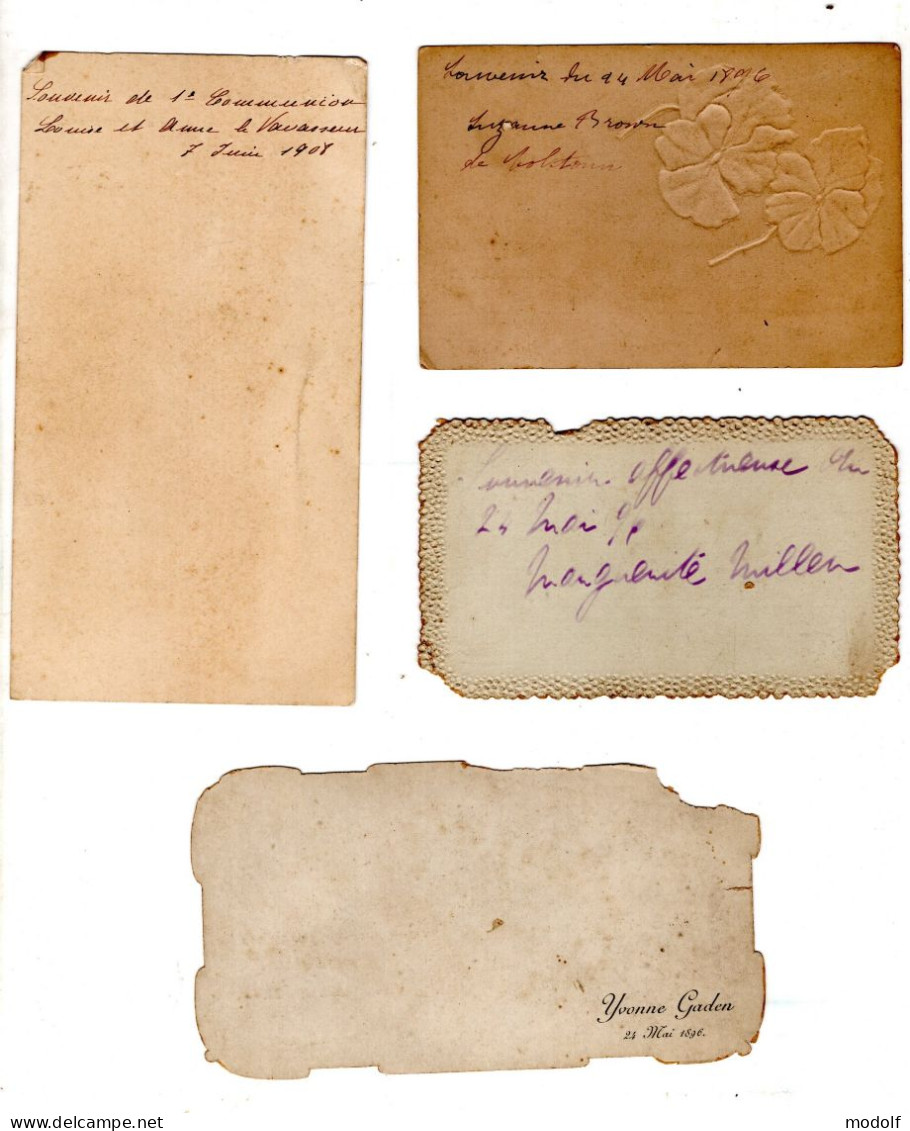 Souvenir de 1e Communion
Louise et Anne le Vavasseur
7 Juin 1908
Souvenir du 24 Mai 1896
Suzanne Brown
de Colstoun
Souvenir affectueuse du
24 Mai 96
Marguerite
Yvonne Gaden
24 Mai 1896.
delcampe.net
modolf